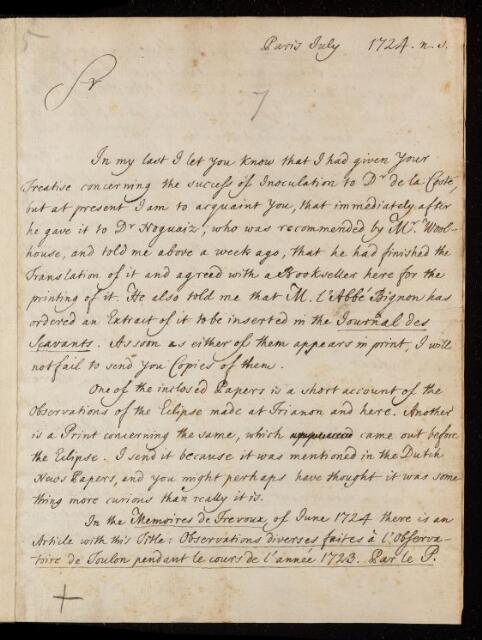 5
Paris July 1724. n. s.
Sr
7
In my last I let you know that I had given your
Treatise concerning the success of Inoculation to Dr de la Coste,
but at present I am to acquaint you, that immediately after
he gave it to Dr Noguaiz, who was recommended by Mr. Wool-
house, and told me above a week ago, that he had finished the
Translation of it and agreed with a Bookseller here for the
printing of it. He also told me that M. l'Abbé Bignon has
ordered an Extract of it to be inserted in the Journal des
Scavants. As soon as either of them appears in print, I will
not fail to send you Copies of them.
One of the inclosed Papers is a short account of the
Observations of the Eclipse made at Trianon and here. Another
is a Print concerning the same, which came out before
the Eclipse. I send it because it was mentioned in the Dutch
News Papers, and you might perhaps have thought it was some
thing more curious than really it is.
In the Memoires de Trevoux, of June 1724 there is an
Article with this Title: Observations diverses faites à l'Observa-
toire de Toulon pendant le cours de l'année 1723. Par le P.